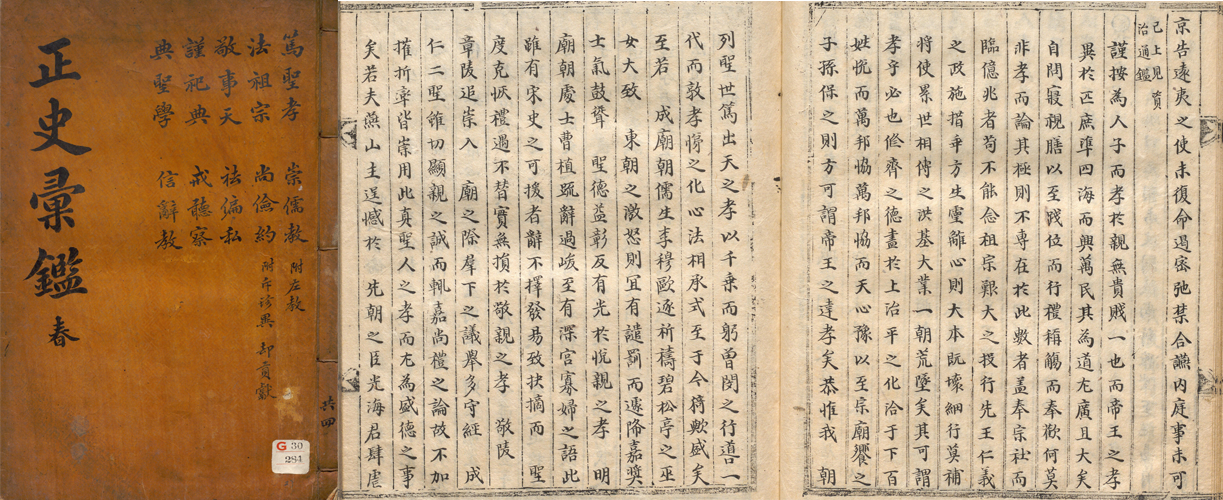 正史彙鑑 春
篤聖孝 崇儒教 附左教
法祖宗 尚儉約 附斥珍異 却貢獻
敬事天 祛偏私
謹祀典 戒聽察
典聖學 信辭教
共四
G 30
284
京告遠夷之使未復命遏密弛禁合讌內庭事未可
已上見 資
治通鑑
謹按為人子而孝於親無貴賤一也而帝王之孝
異於匹庶準四海而興萬民其為道尤廣且大矣
自問寢視膳以至踐位而行禮稱觴而奉歡何莫
非孝而論其極則不專在於此數者盖奉宗社而
臨億兆者苟不能念祖宗艱大之投行先王仁義
之政施措乖方生靈離心則大本既壞細行莫補
將使累世相傳之洪基大業一朝荒墜矣其可謂
孝乎必也修齊之德盡於上治平之化洽于下百
姓悅而萬邦協萬邦協而天心豫以至宗廟饗之
子孫保之則方可謂帝王之達孝矣恭惟我 朝
列聖世篤出天之孝以千乘而躬曾閔之行道一
代而敦孝悌之化心法相承式至于今猗歟盛矣
至若 成廟朝儒生李穆歐逐祈禱碧松亭之巫
女大致 東朝之激怒則宜有譴罰而遽降嘉獎
士氣鼓聳 聖德益彰反有光於悅親之孝 明
廟朝處士曹植疏辭過峻至有深宮寡婦之語此
雖有宋史之可援者辭不擇發易致抉摘而 聖
度克恢禮遇不替實無損於敬親之孝 敬陵
章陵追崇入 廟之際羣下之議舉多守經 成
仁二聖雖切顯親之誠而輒嘉尚禮之論故不加
摧折率皆崇用此真聖人之孝而尤為盛德之事
矣若夫燕山主逞憾於 先朝之臣光海君肆虐